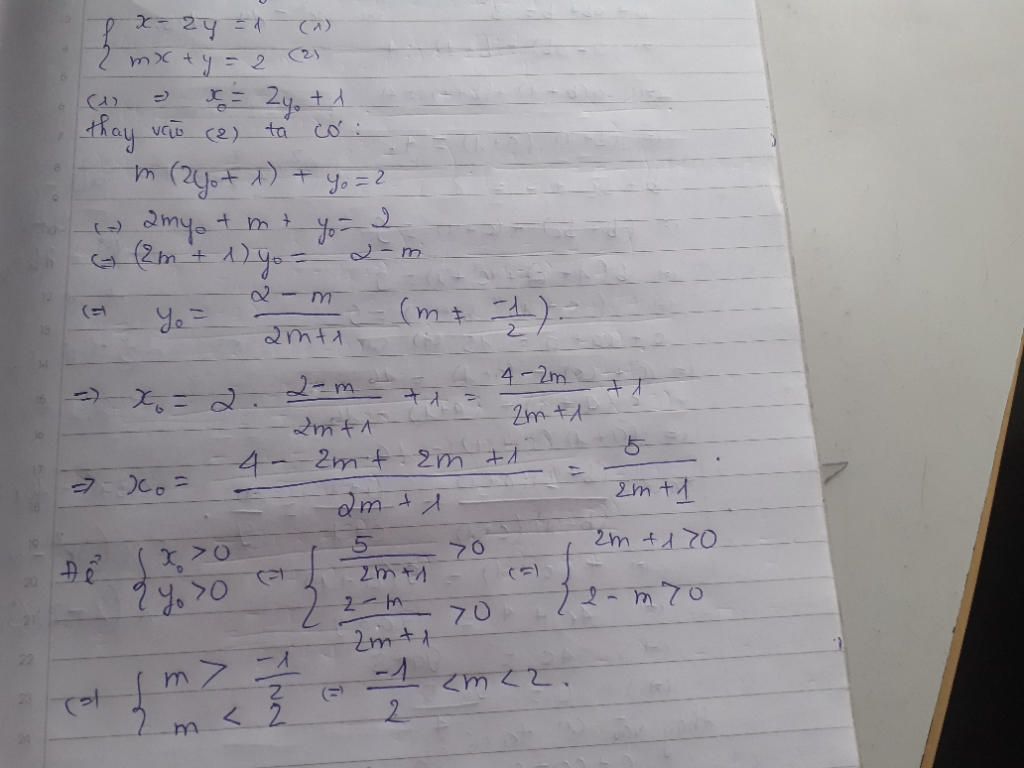 { x - 2y = 1 (1)
{ mx + y = 2 (2)
(1) => x₀ = 2y₀ + 1
thay vào (2) ta có :
m (2y₀ + 1) + y₀ = 2
<=> 2my₀ + m + y₀ = 2
<=> (2m + 1) y₀ = 2 - m
<=> y₀ = (2 - m)/(2m + 1) (m ≠ -1/2).
=> x₀ = 2 . (2 - m)/(2m + 1) + 1 = (4 - 2m)/(2m + 1) + 1
=> x₀ = (4 - 2m + 2m + 1)/(2m + 1) = 5/(2m + 1) .
Để { x₀ > 0 ; y₀ > 0 <=> { 5/(2m + 1) > 0 ; (2 - m)/(2m + 1) > 0 <=> { 2m + 1 > 0 ; 2 - m > 0
<=> { m > -1/2 ; m < 2 <=> -1/2 < m < 2 .